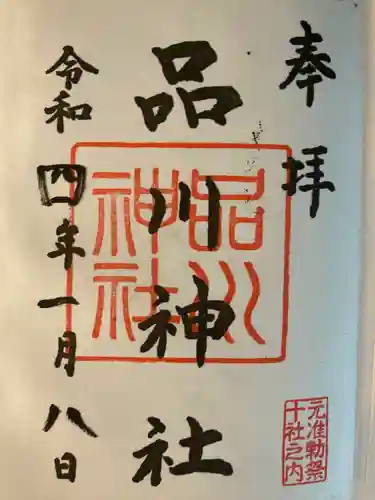 奉拝
品川神社
令和四年一月八日
品川
神社
元准勅祭
十社之内